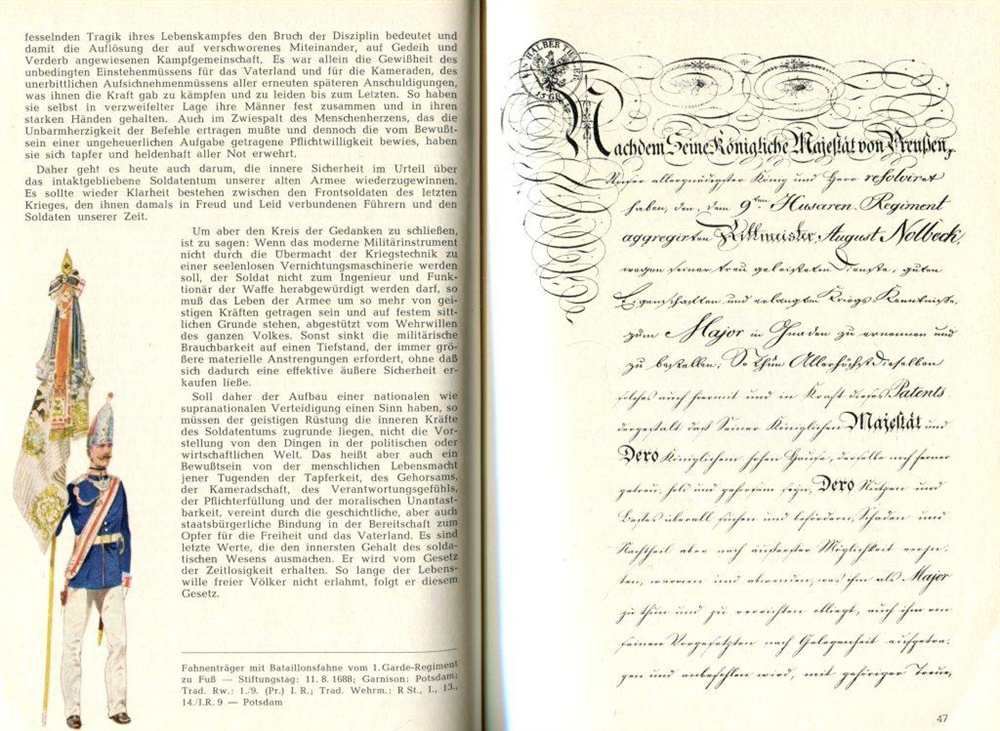 fesselnden Tragik ihres Lebenskampfes den Bruch der Disziplin bedeutet und
damit die Auflösung der auf verschworenes Miteinander, auf Gedeih und
Verderb angewiesenen Kampfgemeinschaft. Es war allein die Gewißheit des
unbedingten Einstehenmüssens für das Vaterland und für die Kameraden, des
unerbittlichen Aufsichnehmenmüssens aller erneuten späteren Anschuldigungen,
was ihnen die Kraft gab zu kämpfen und zu leiden bis zum Letzten. So haben
sie selbst in verzweifelter Lage ihre Männer fest zusammen und in ihren
starken Händen gehalten. Auch im Zwiespalt des Menschenherzens, das die
Unbarmherzigkeit der Befehle ertragen mußte und dennoch die vom Bewußt-
sein einer ungeheuerlichen Aufgabe getragene Pflichtwilligkeit bewies, haben
sie sich tapfer und heldenhaft aller Not erwehrt.
Daher geht es heute auch darum, die innere Sicherheit im Urteil über
das intaktgebliebene Soldatentum unserer alten Armee wiederzugewinnen,
Es sollte wieder Klarheit bestehen zwischen den Frontsoldaten des letzten
Krieges, den ihnen damals in Freud und Leid verbundenen Führern und den
Soldaten unserer Zeit.
Um aber den Kreis der Gedanken zu schließen,
ist zu sagen: Wenn das moderne Militärinstrument
nicht durch die Übermacht der Kriegstechnik zu
einer seelenlosen Vernichtungsmaschinerie werden
soll, der Soldat nicht zum Ingenieur und Funk-
tionär der Waffe herabgewürdigt werden darf, so
muß das Leben der Armee um so mehr von gei-
stigen Kräften getragen sein und auf festem sitt-
lichen Grunde stehen, abgestützt vom Wehrwillen
des ganzen Volkes. Sonst sinkt die militärische
Brauchbarkeit auf einen Tiefstand, der immer grö-
ßere materielle Anstrengungen erfordert, ohne daß
sich dadurch eine effektive äußere Sicherheit er-
kaufen ließe.
Soll daher der Aufbau einer nationalen wie
supranationalen Verteidigung einen Sinn haben, so
müssen der geistigen Rüstung die inneren Kräfte
des Soldatentums zugrunde liegen, nicht die Vor-
stellung von den Dingen in der politischen oder
wirtschaftlichen Welt. Das heißt aber auch ein
Bewußtsein von der menschlichen Lebensmacht
jener Tugenden der Tapferkeit, des Gehorsams,
der Kameradschaft, des Verantwortungsgefühls,
der Pflichterfüllung und der moralischen Unantast-
barkeit, vereint durch die geschichtliche, aber auch
staatsbürgerliche Bindung in der Bereitschaft zum
Opfer für die Freiheit und das Vaterland. Es sind
letzte Werte, die den innersten Gehalt des solda-
tischen Wesens ausmachen. Er wird vom Gesetz
der Zeitlosigkeit erhalten. So lange der Lebens-
wille freier Völker nicht erlahmt, folgt er diesem
Gesetz.
Fahnenträger mit Bataillonsfahne vom 1. Garde-Regiment
zu Fuß — Stiftungstag: 11. 8. 1688; Garnison: Potsdam;
Trad. Rw.: 1./9. (Pr.) I. R.; Trad. Wehrm.: R St., I., 13.,
14./I.R. 9 — Potsdam
HALBER
Nachdem Seine Königliche Majestät von Preußen,
Unser allergnädigster König und Herr resolviret
haben, den, dem 9ten Husaren-Regiment
aggregirten Rittmeister August Nolbeck,
wegen seiner treu geleisteten Dienste, guten
Eigenschaften und erlangten Kriegs Kenntnisse,
zum Major in Gnaden zu ernennen und
zu bestellen; So thun Allerhöchstdieselben
solches auch hiermit und in Kraft dieses Patents
dergestalt daß Seiner Königlichen Majestät und
Dero Königlichem hohen Hause, derselbe noch ferner
getreu, hold und gehorsam sein, Dero Nutzen und
Bestes überall suchen und befördern, Schaden und
Nachtheil aber nach äußerster Möglichkeit verhü-
ten, warnen und abwenden, was ihm als Major
zu thun und zu verrichten obliegt, auch ihm von
seinen Vorgesetzten nach Gelegenheit aufgetra-
gen und anbefohlen wird, mit gehöriger Treue,
47